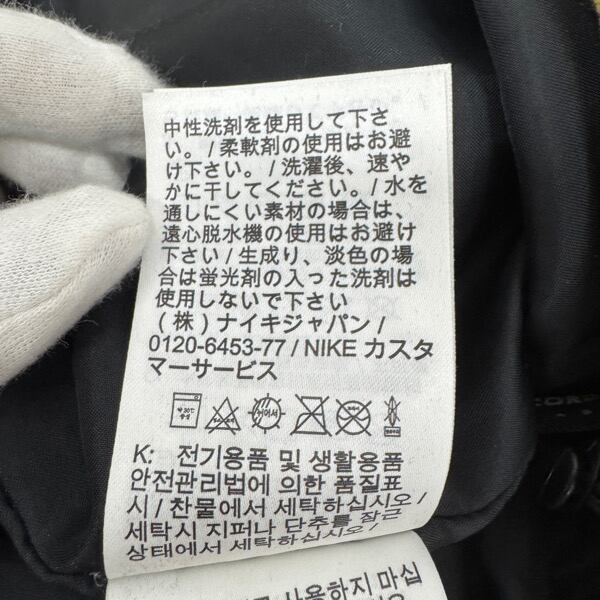 中性洗剤を使用して下さ
い。/ 柔軟剤の使用はお避
け下さい。/ 洗濯後、速や
かに干してください。/ 水を
通しにくい素材の場合は、
遠心脱水機の使用はお避け
下さい / 生成り、淡色の場
合は蛍光剤の入った洗剤は
使用しないで下さい
(株) ナイキジャパン /
0120-6453-77 / NIKE カスタ
マーサービス
K: 전기용품 및 생활용품
안전관리법에 의한 품질표
시 / 찬물에서 세탁하십시오 /
세탁시 지퍼나 단추를 잠근
상태에서 세탁하십시오 /
사용하지 마십